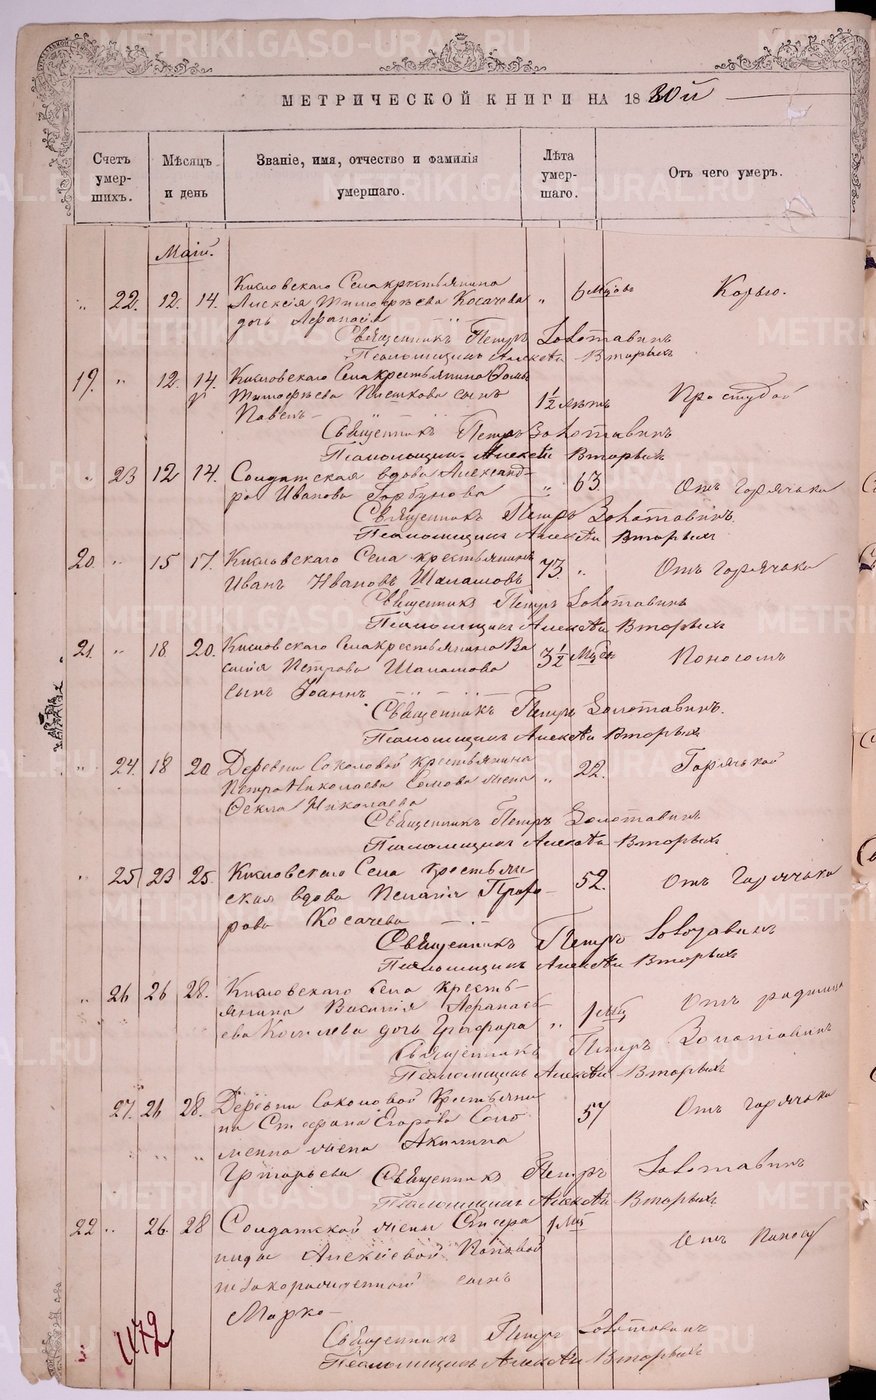 МЕТРИЧЕСКОЙ КНИГИ НА 1880й
Счетъ умер-шихъ.
Мѣсяцъ и день
Званіе, имя, отчество и фамилія умершаго.
Лѣта умер-шаго.
Отъ чего умеръ.
Маій.
„ 22. 12. 14. Кисловскаго Села крестьянина
Алексія Тимофѣева Косачева „ 6 мцовъ Корью.
дочь Афанасія
Священникъ Петръ Золотавинъ
Псаломщикъ Алексѣй Вторыхъ
19. „ 12. 14. Кисловскаго Села крестьянина
Тимофѣева сынъ 1½ лѣтъ Простудой
Павелъ
Священникъ Петръ Золотавинъ
Псаломщикъ Алексѣй Вторыхъ
„ 23 12 14. Солдатская вдова Александ-
ра Иванова Горбунова „ 63. Отъ Горячьки
Священникъ Петръ Золотавинъ
Псаломщикъ Алексѣй Вторыхъ
20. „ 15 17. Кисловскаго Села крестьянинъ
Иванъ Ивановъ Шаламовъ 73. „ Отъ Горячьки
Священникъ Петръ Золотавинъ
Псаломщикъ Алексѣй Вторыхъ
21. „ 18 20. Кисловскаго Села крестьянина Ва
силія Петрова Шаламова 3½ Мцсъ Поносомъ
сынъ Іоаннъ
Священникъ Петръ Золотавинъ.
Псаломщикъ Алексѣй Вторыхъ
„ 24. 18 20 Деревни Соколовой крестьянина
Петра Николаева жена „ 22. Горячькой
Фекла Николаева
Священникъ Петръ Золотавинъ
Псаломщикъ Алексѣй Вторыхъ
„ 25 23 25. Кисловскаго Села крестьян
ская вдова Пелагія Прохо- 52. Отъ Горячьки
рова Косачева
Священникъ Петръ Золотавинъ
Псаломщикъ Алексѣй Вторыхъ
„ 26 26 28. Кисловскаго Села кресть-
янина Василія Афанась-
ева дочь „ 1 Мцъ Отъ родимца
Священникъ Петръ Золотавинъ
Псаломщикъ Алексѣй Вторыхъ
27. 26 28. Деревни Соколовой Крестьяни
на Стефана Егорова Соло 57 Отъ горячьки
жена Акилина
Григорьева
Священникъ Петръ Золотавинъ
Псаломщикъ Алексѣй Вторыхъ
22 „ 26. 28 Солдатской жены 1 Мцъ
Алексіевой Поповой Отъ Поносу
незаконорожденной сынъ
Марко
Священникъ Петръ Золотавинъ
Псаломщикъ Алексѣй Вторыхъ
1172
METRIKI.GASO-URAL.RU